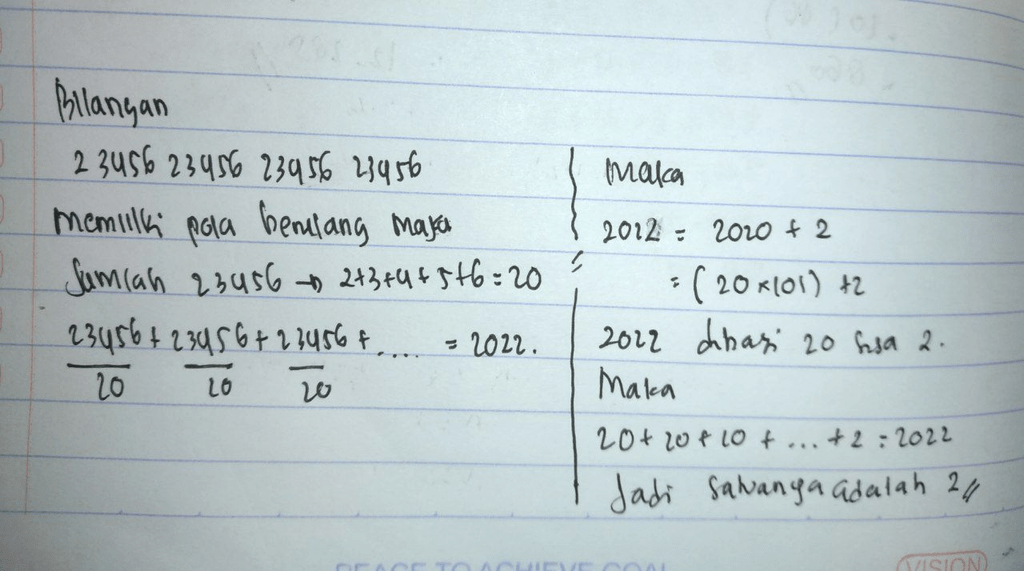 Bilangan
23456 23456 23456 23456
memiliki pola berulang maka
Jumlah 23456 → 2+3+4+5+6=20
23456 + 23456 + 23456 + ..... = 2022.
20 20 20
Maka
2022 = 2020 + 2
= (20×101) +2
2022 dibagi 20 sisa 2.
Maka
20 + 20 + 20 + ... + 2 = 2022
Jadi sisanya adalah 2//
PEACE TO ACHIEVE GOAL
VISION